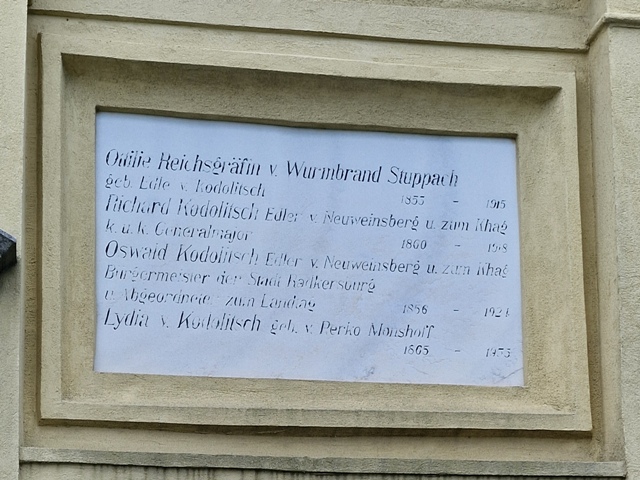 Ottilie Reichsgräfin v. Wurmbrand Stuppach
geb. Edle v. Kodolitsch
1853 – 1915
Richard Kodolitsch Edler v. Neuweinsberg u. zum Khag
k. u. k. Generalmajor 1860 –
Oswald Kodolitsch Edler v. Neuweinsberg u. zum Khag
Bürgermeister der Stadt Radkersburg
u. Abgeordneter zum Landtag 1856 –
Lydia v. Kodolitsch geb. v. Perko Monshoff
1865 –